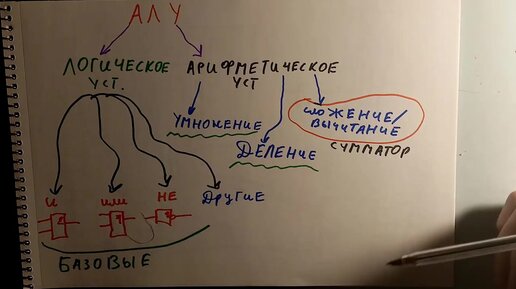 АЛУ
ЛОГИЧЕСКОЕ УСТ.
АРИФМЕТИЧЕСКОЕ УСТ
УМНОЖЕНИЕ
ДЕЛЕНИЕ
СЛОЖЕНИЕ/
ВЫЧИТАНИЕ
СУММАТОР
И ИЛИ НЕ ДРУГИЕ
БАЗОВЫЕ